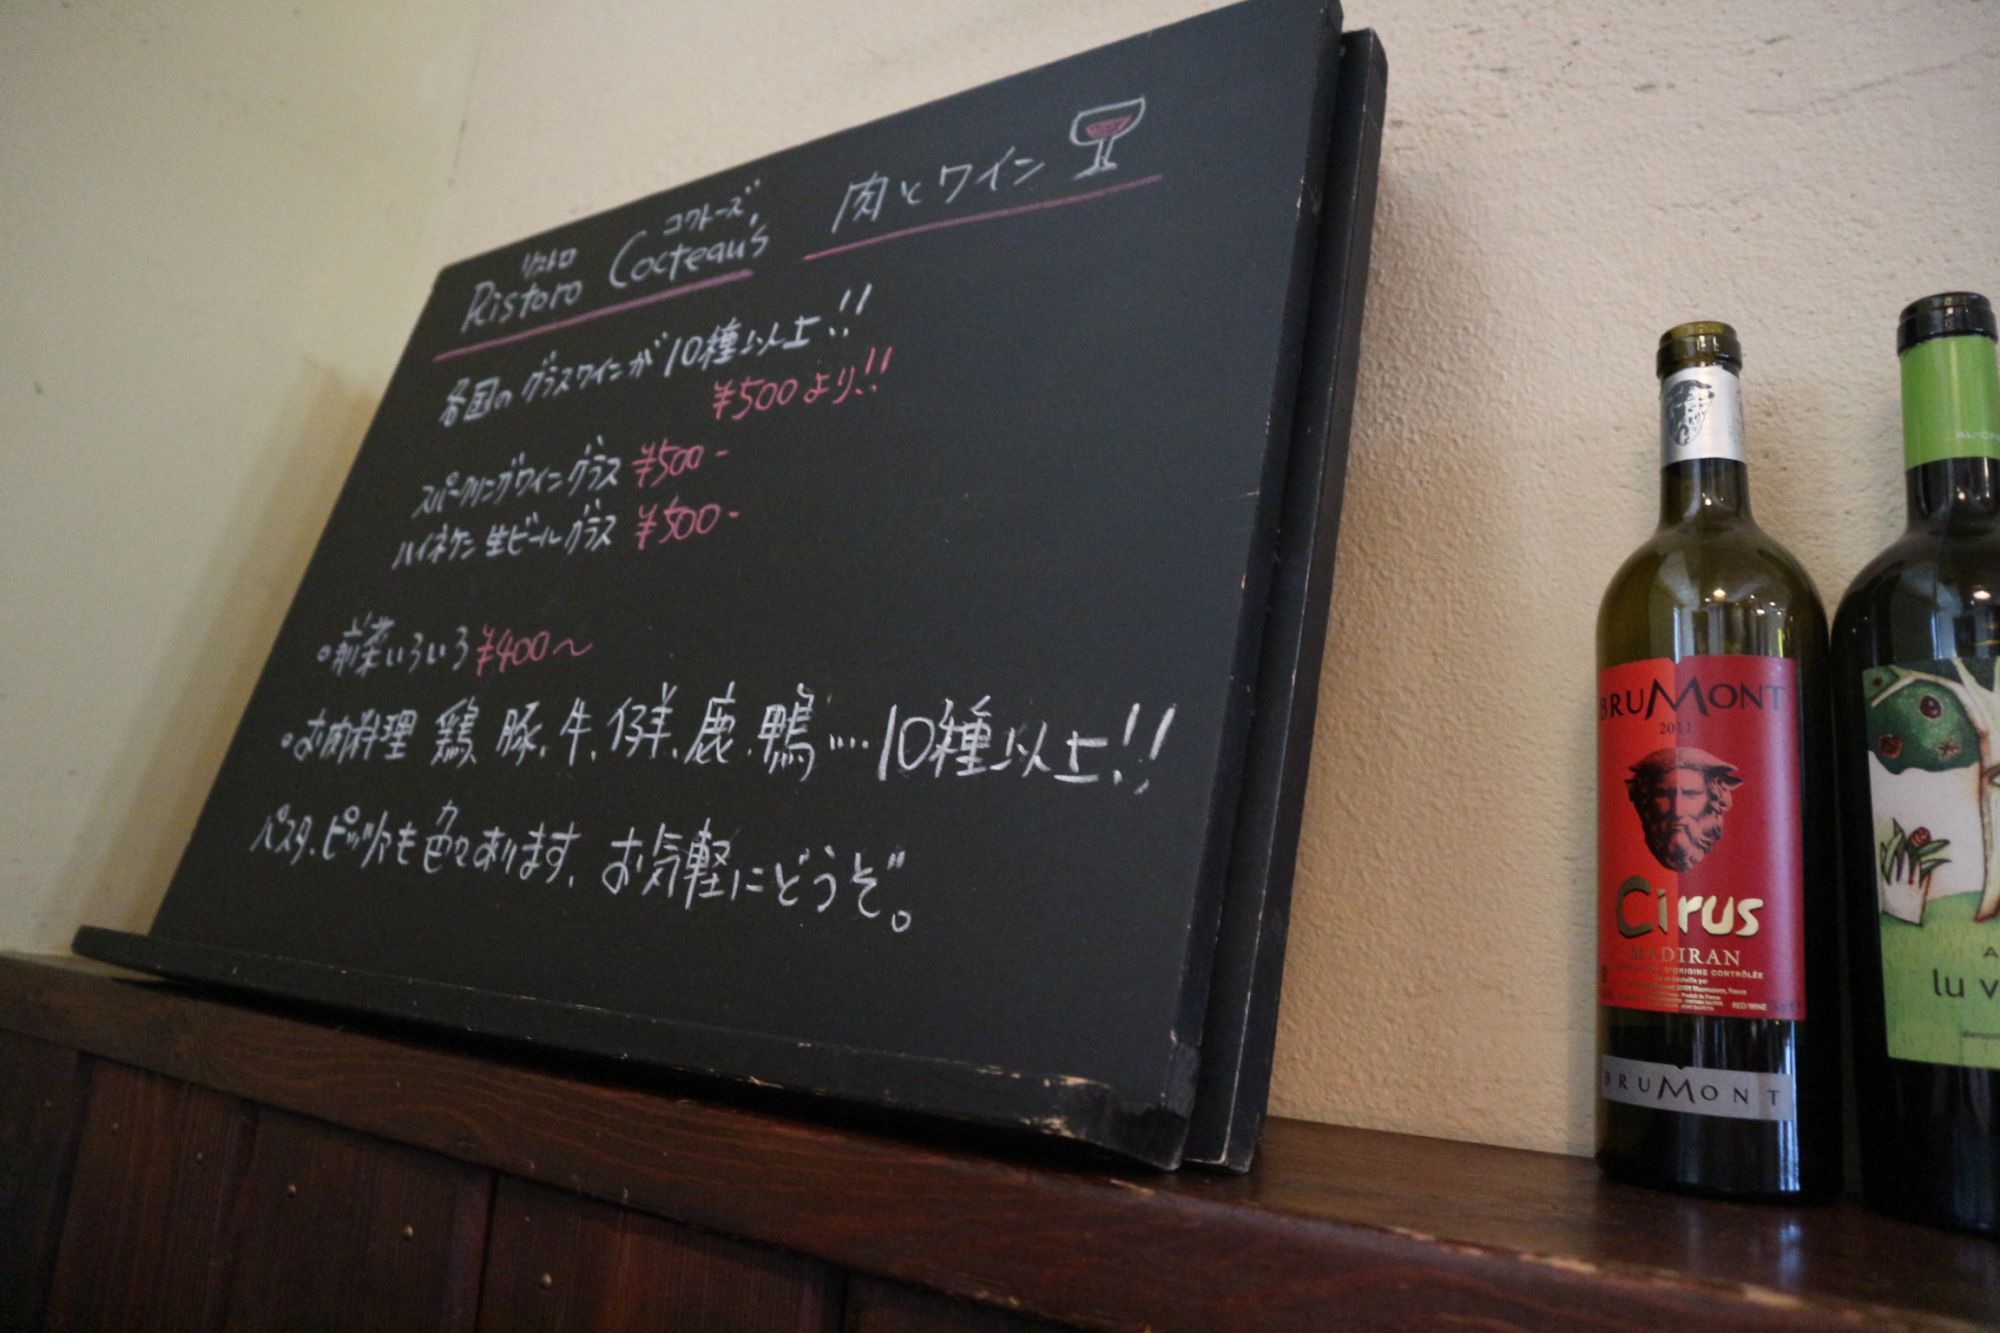 リストロ コクトーズ
Ristoro Cocteau's 肉とワイン
各国のグラスワインが10種以上!!
¥500より!!
スパークリングワイングラス ¥500-
ハイネケン生ビールグラス ¥500-
・前菜いろいろ ¥400〜
・お肉料理 鶏、豚、牛、仔羊、鹿、鴨…10種以上!!
パスタ、ピッツァも色々あります、お気軽にどうぞ。
BRUMONT
2011
Cirus
MADIRAN
D'ORIGINE CONTRÔLÉE
RED WINE
BRUMONT
lu v